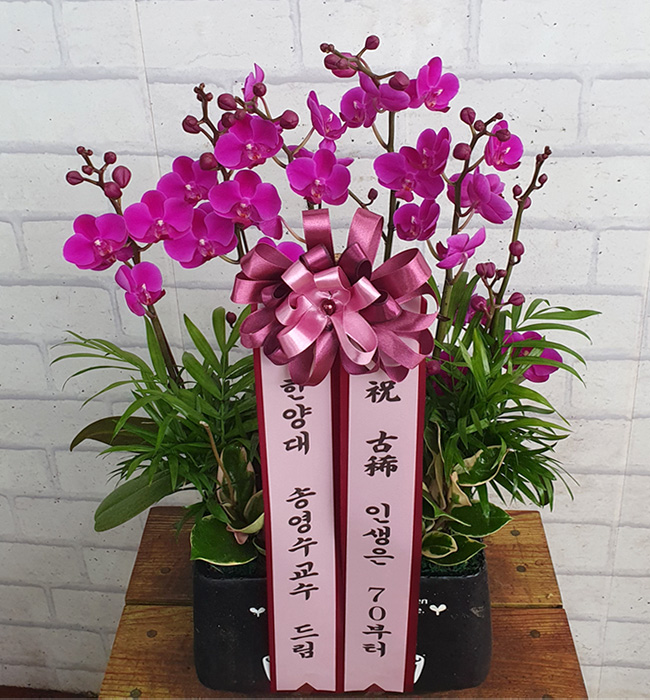 祝 古稀 인생은 70부터
한양대 송영수교수 드림